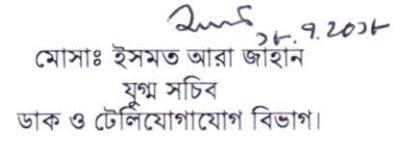 মোসাঃ ইসমত আরা জাহান
যুগ্ম সচিব
ডাক ও টেলিযোগাযোগ বিভাগ।